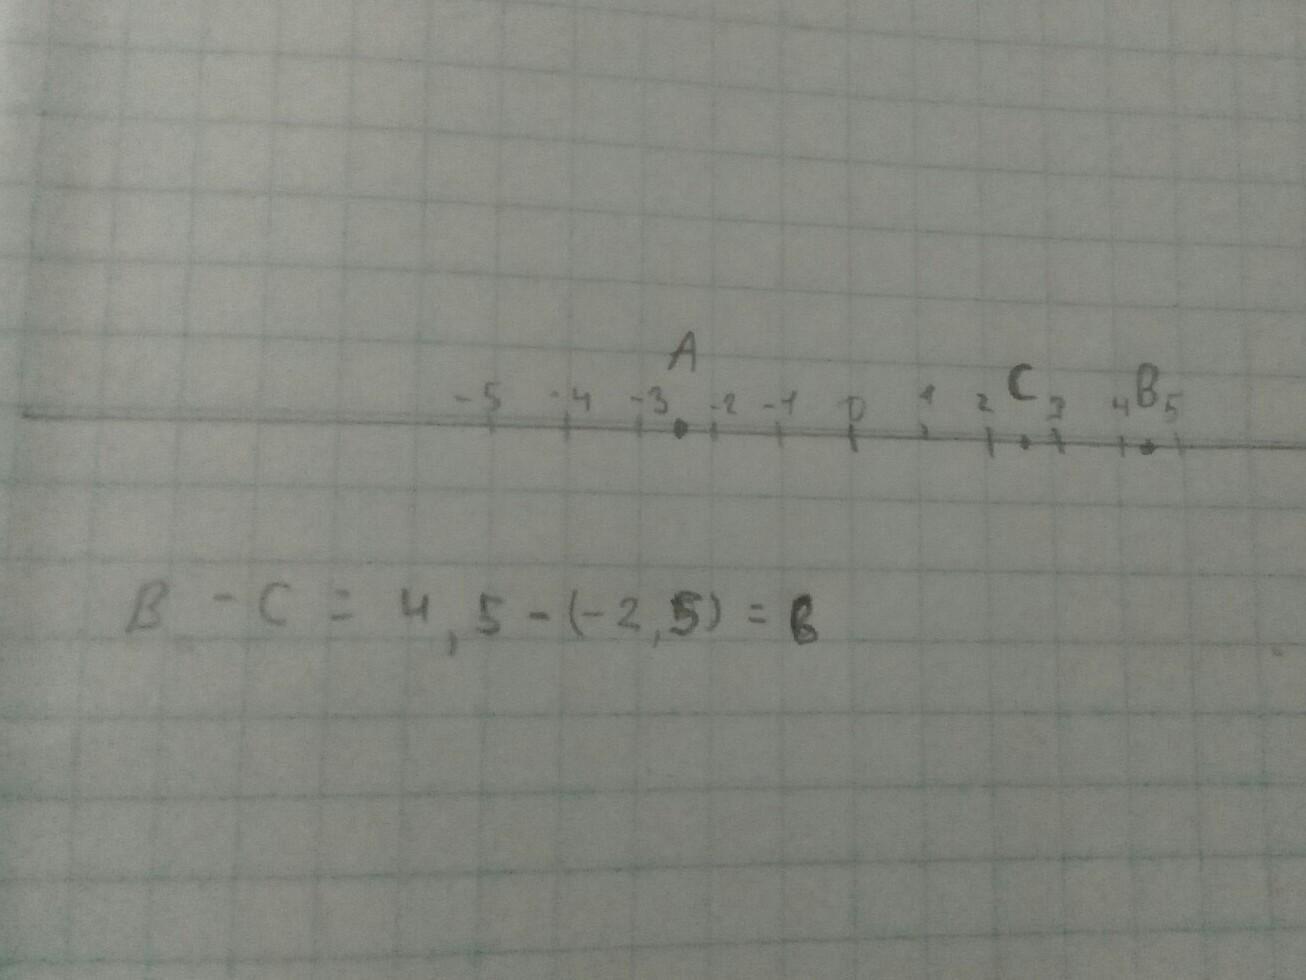 A
C B
-5 -4 -3 -2 -1 0 1 2 3 4 5
B - C = 4,5 - (-2,5) = 6